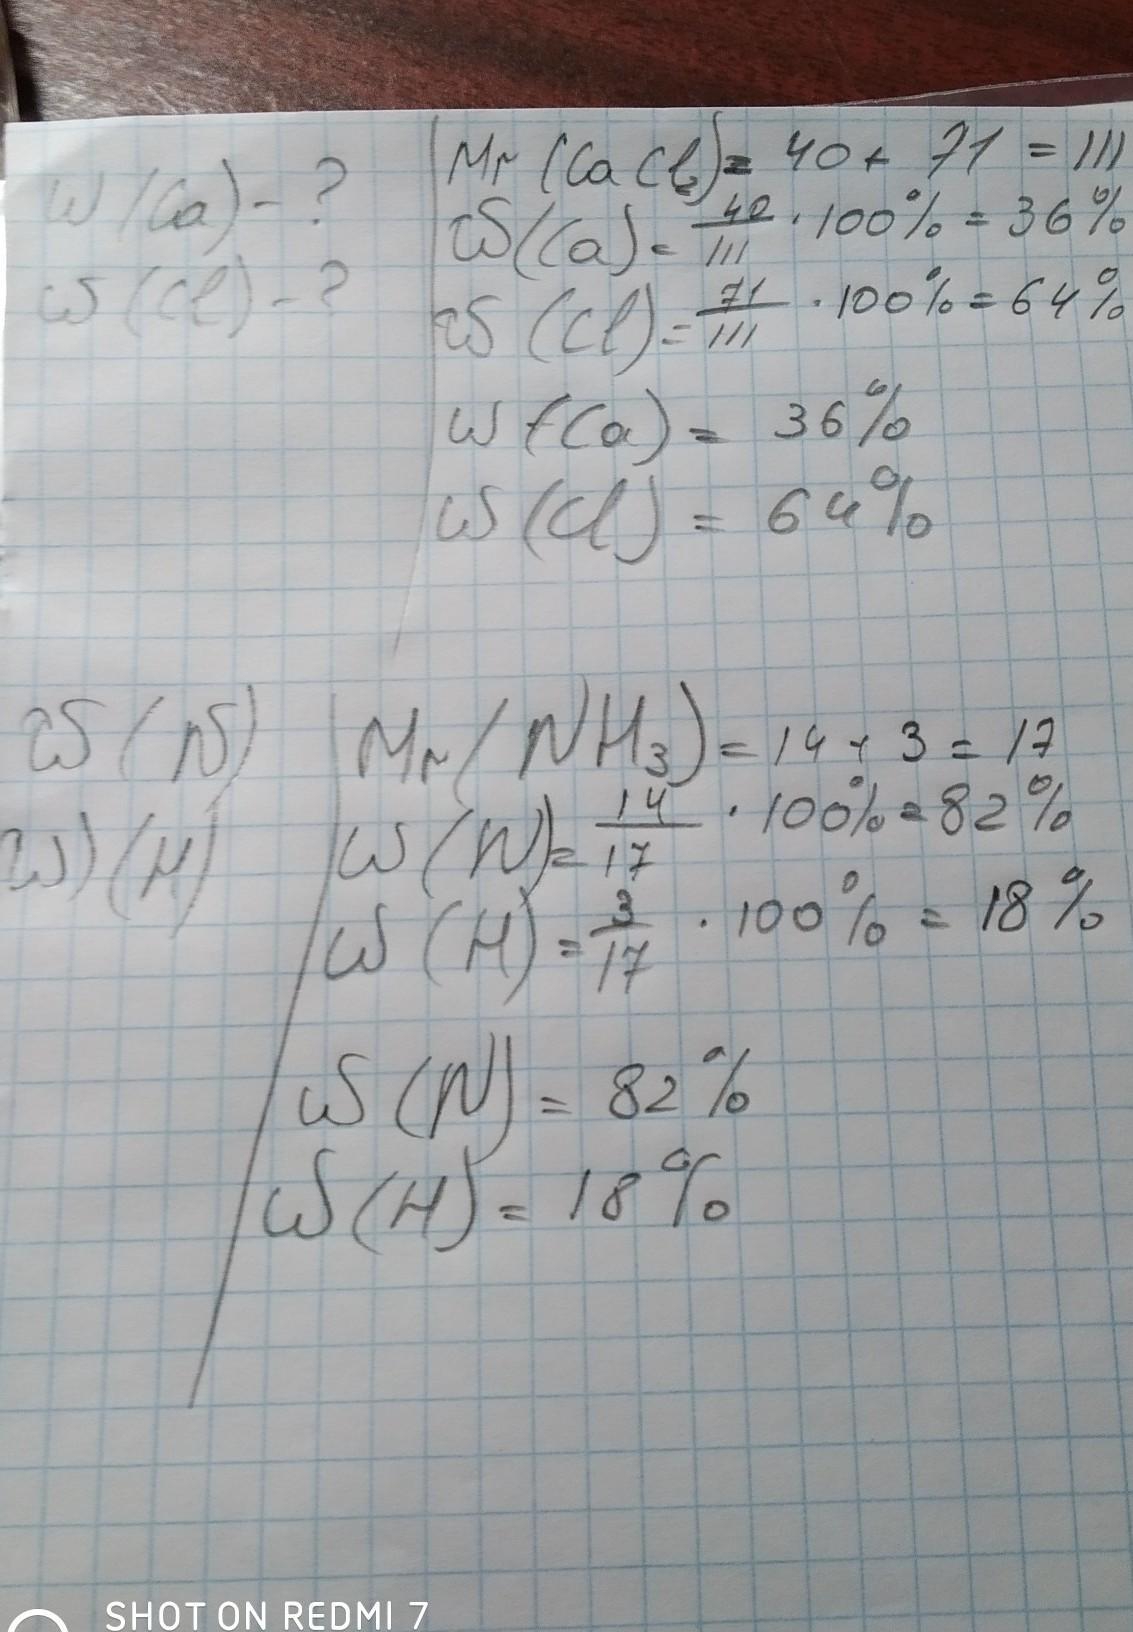 W(Ca) - ?
W(Cl) - ?
Mr(CaCl₂) = 40 + 71 = 111
W(Ca) = 40/111 · 100% = 36%
W(Cl) = 71/111 · 100% = 64%
W(Ca) = 36%
W(Cl) = 64%
W(N)
W(H)
Mr(NH₃) = 14 + 3 = 17
W(N) = 14/17 · 100% = 82%
W(H) = 3/17 · 100% = 18%
W(N) = 82%
W(H) = 18%
SHOT ON REDMI 7